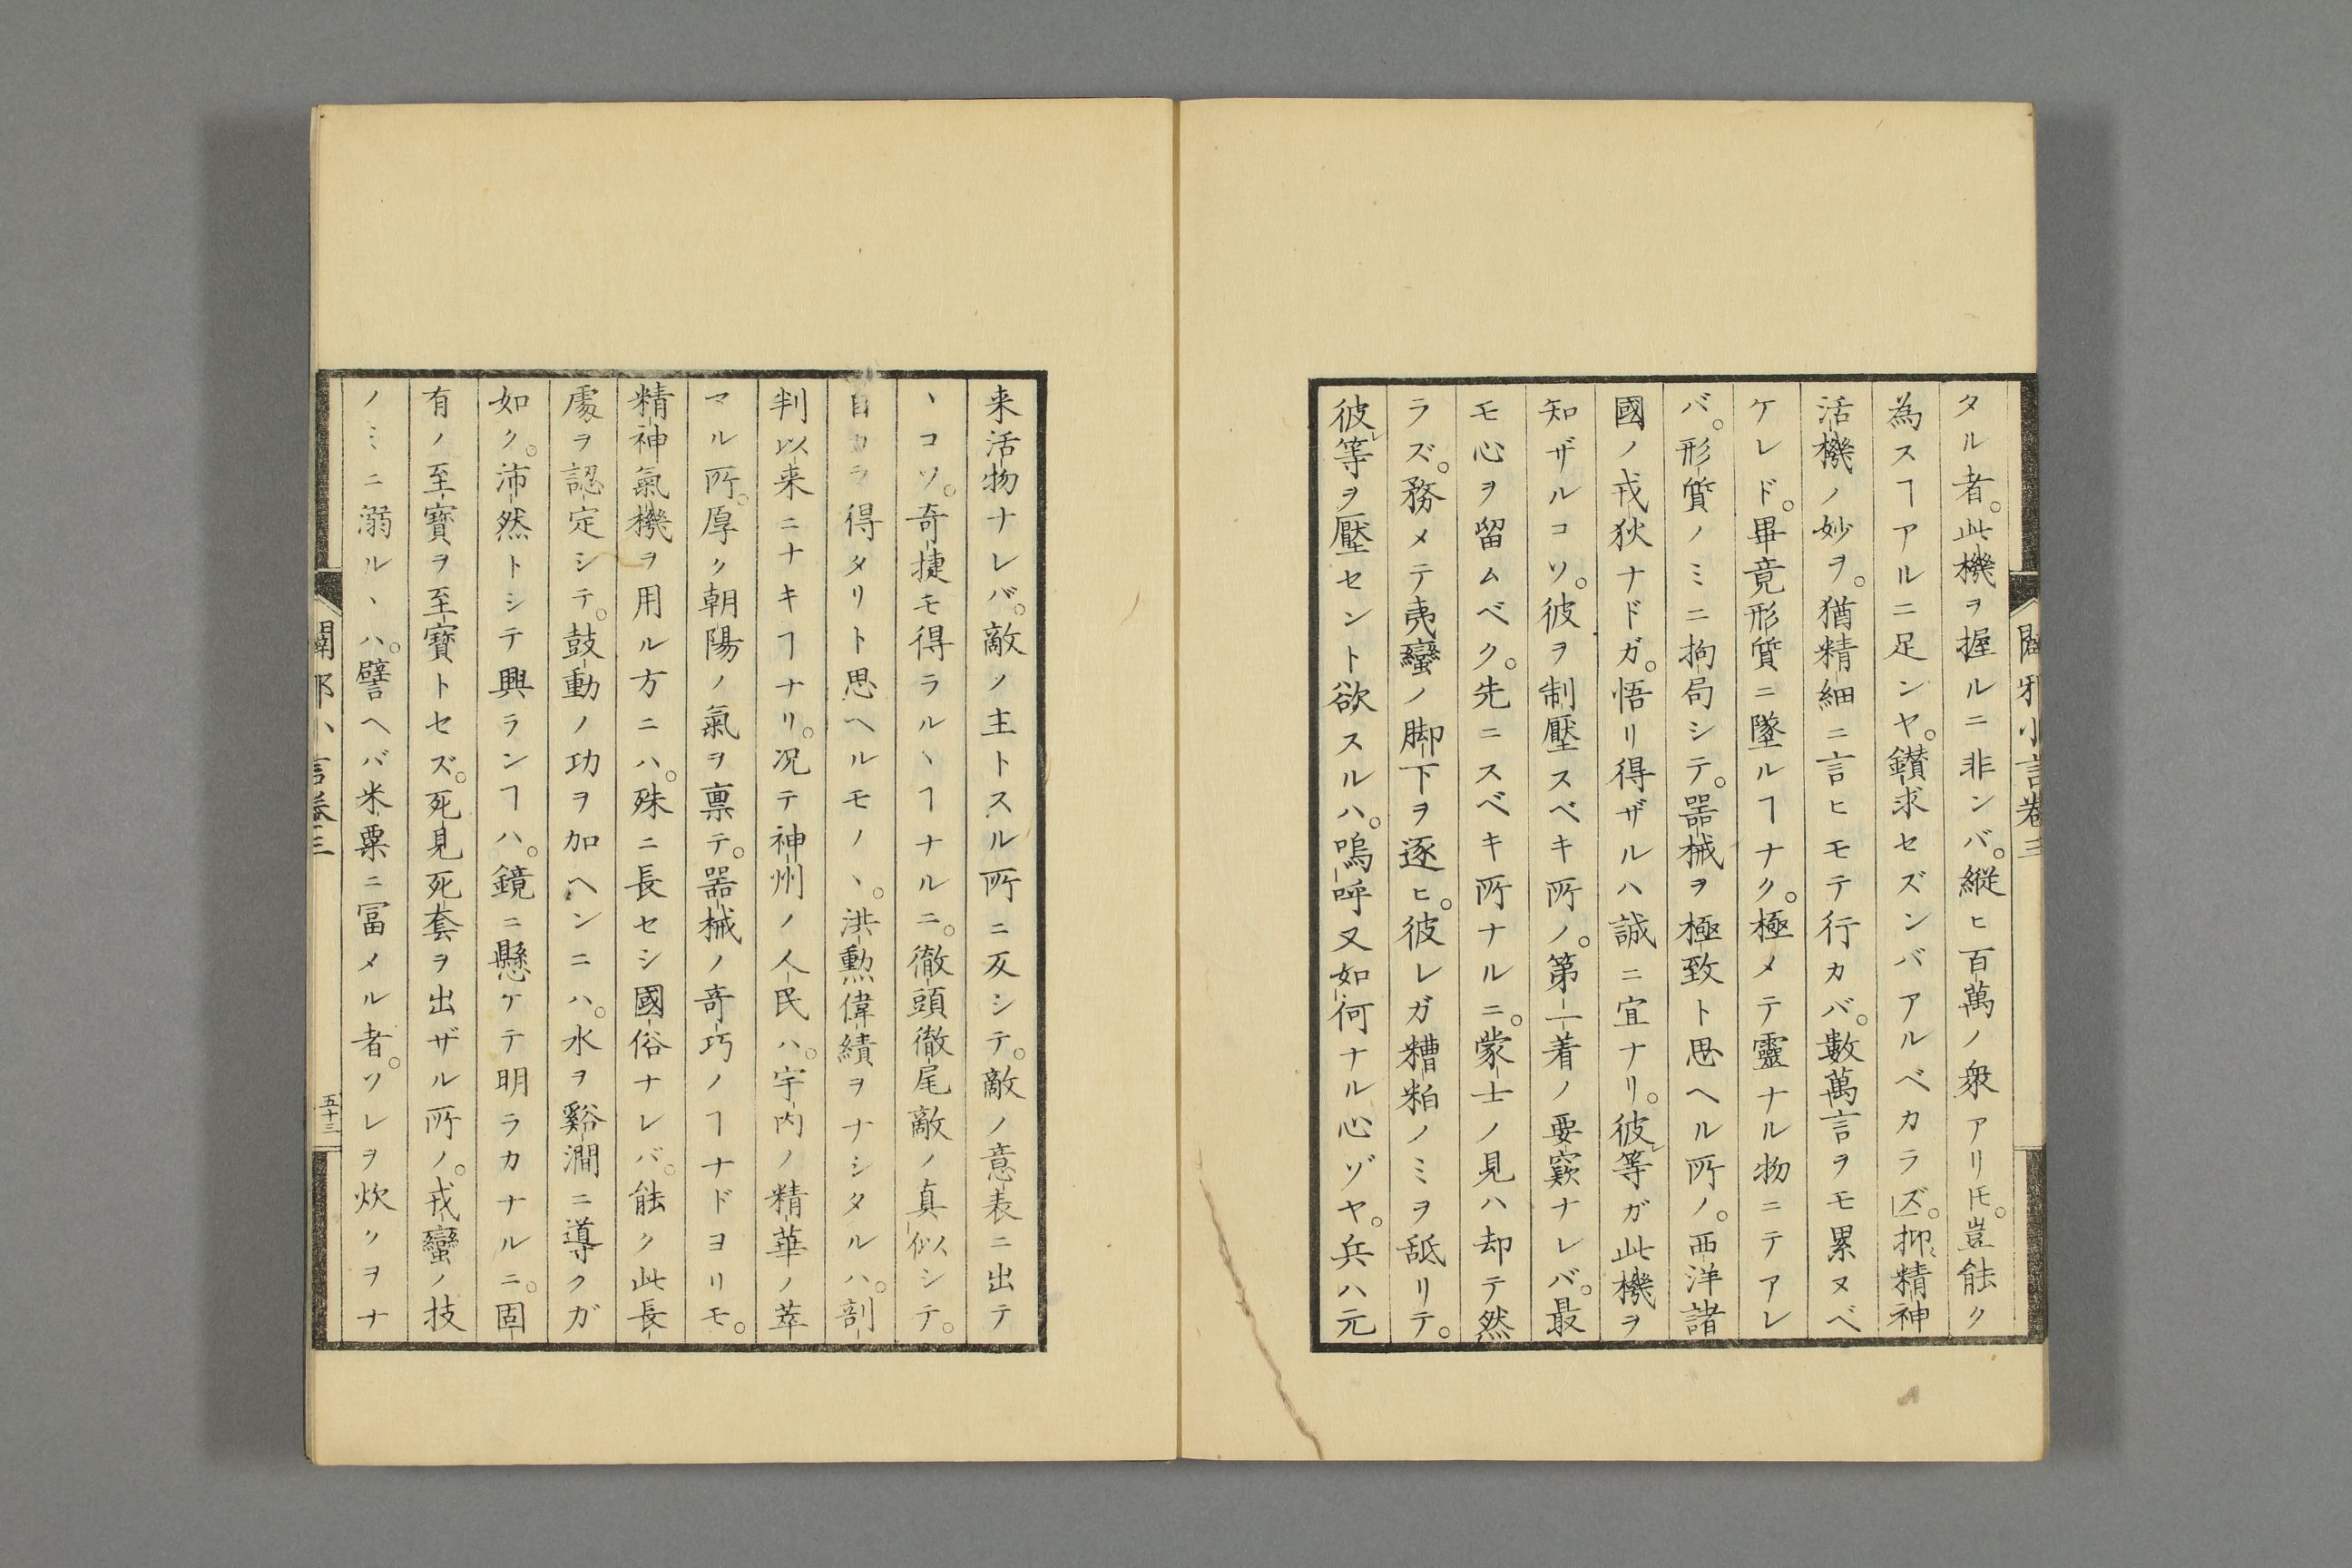 闢邪小言卷三
タル者。此機ヲ握ルニ非ンバ。縦ヒ百萬ノ衆アリ𪜈。豈能ク
為スヿアルニ足ンヤ。鑚求セズンバアルベカラズ。抑〻精神
活機ノ妙ヲ。猶精細ニ言ヒモテ行カバ。數萬言ヲモ累ヌベ
ケレド。畢竟形質ニ墜ルヿナク。極メテ靈ナル物ニテアレ
バ。形質ノミニ拘局シテ。器械ヲ極致ト思ヘル所ノ。西洋諸
國ノ戎狄ナドガ。悟リ得ザルハ誠ニ宜ナリ。彼レ等ガ此機ヲ
知ザルコソ。彼ヲ制壓スベキ所ノ。第一着ノ要竅ナレバ。最
モ心ヲ留ムベク。先ニスベキ所ナルニ。蒙士ノ見ハ却テ然
ラズ。務メテ夷蠻ノ脚下ヲ逐ヒ。彼レガ糟粕ノミヲ舐リテ。
彼レ等ヲ壓セント欲スルハ。嗚呼又如何ナル心ゾヤ。兵ハ元
来活物ナレバ。敵ノ主トスル所ニ反シテ。敵ノ意表ニ出テ
ヽコソ。奇捷モ得ラルヽヿナルニ。徹頭徹尾敵ノ真似シテ。
自カラ得タリト思ヘルモノヽ。洪勲偉績ヲナシタルハ。剖
判以来ニナキヿナリ。况テ神州ノ人民ハ。宇内ノ精華ノ萃
マル所。厚ク朝陽ノ氣ヲ禀テ。器械ノ竒巧ノヿナドヨリモ。
精神氣機ヲ用ル方ニハ。殊ニ長セシ國俗ナレバ。能ク此長
處ヲ認定シテ。鼓動ノ功ヲ加ヘンニハ。水ヲ谿澗ニ導クガ
如ク。沛然トシテ興ランヿハ。鏡ニ懸ケテ明ラカナルニ。固
有ノ至寶ヲ至寳トセズ。死見死套ヲ出ザル所ノ。戎蠻ノ技
ノミニ溺ルヽハ。譬ヘバ米粟ニ冨メル者。ソレヲ炊クヲナ
闢邪小言卷三
五十三